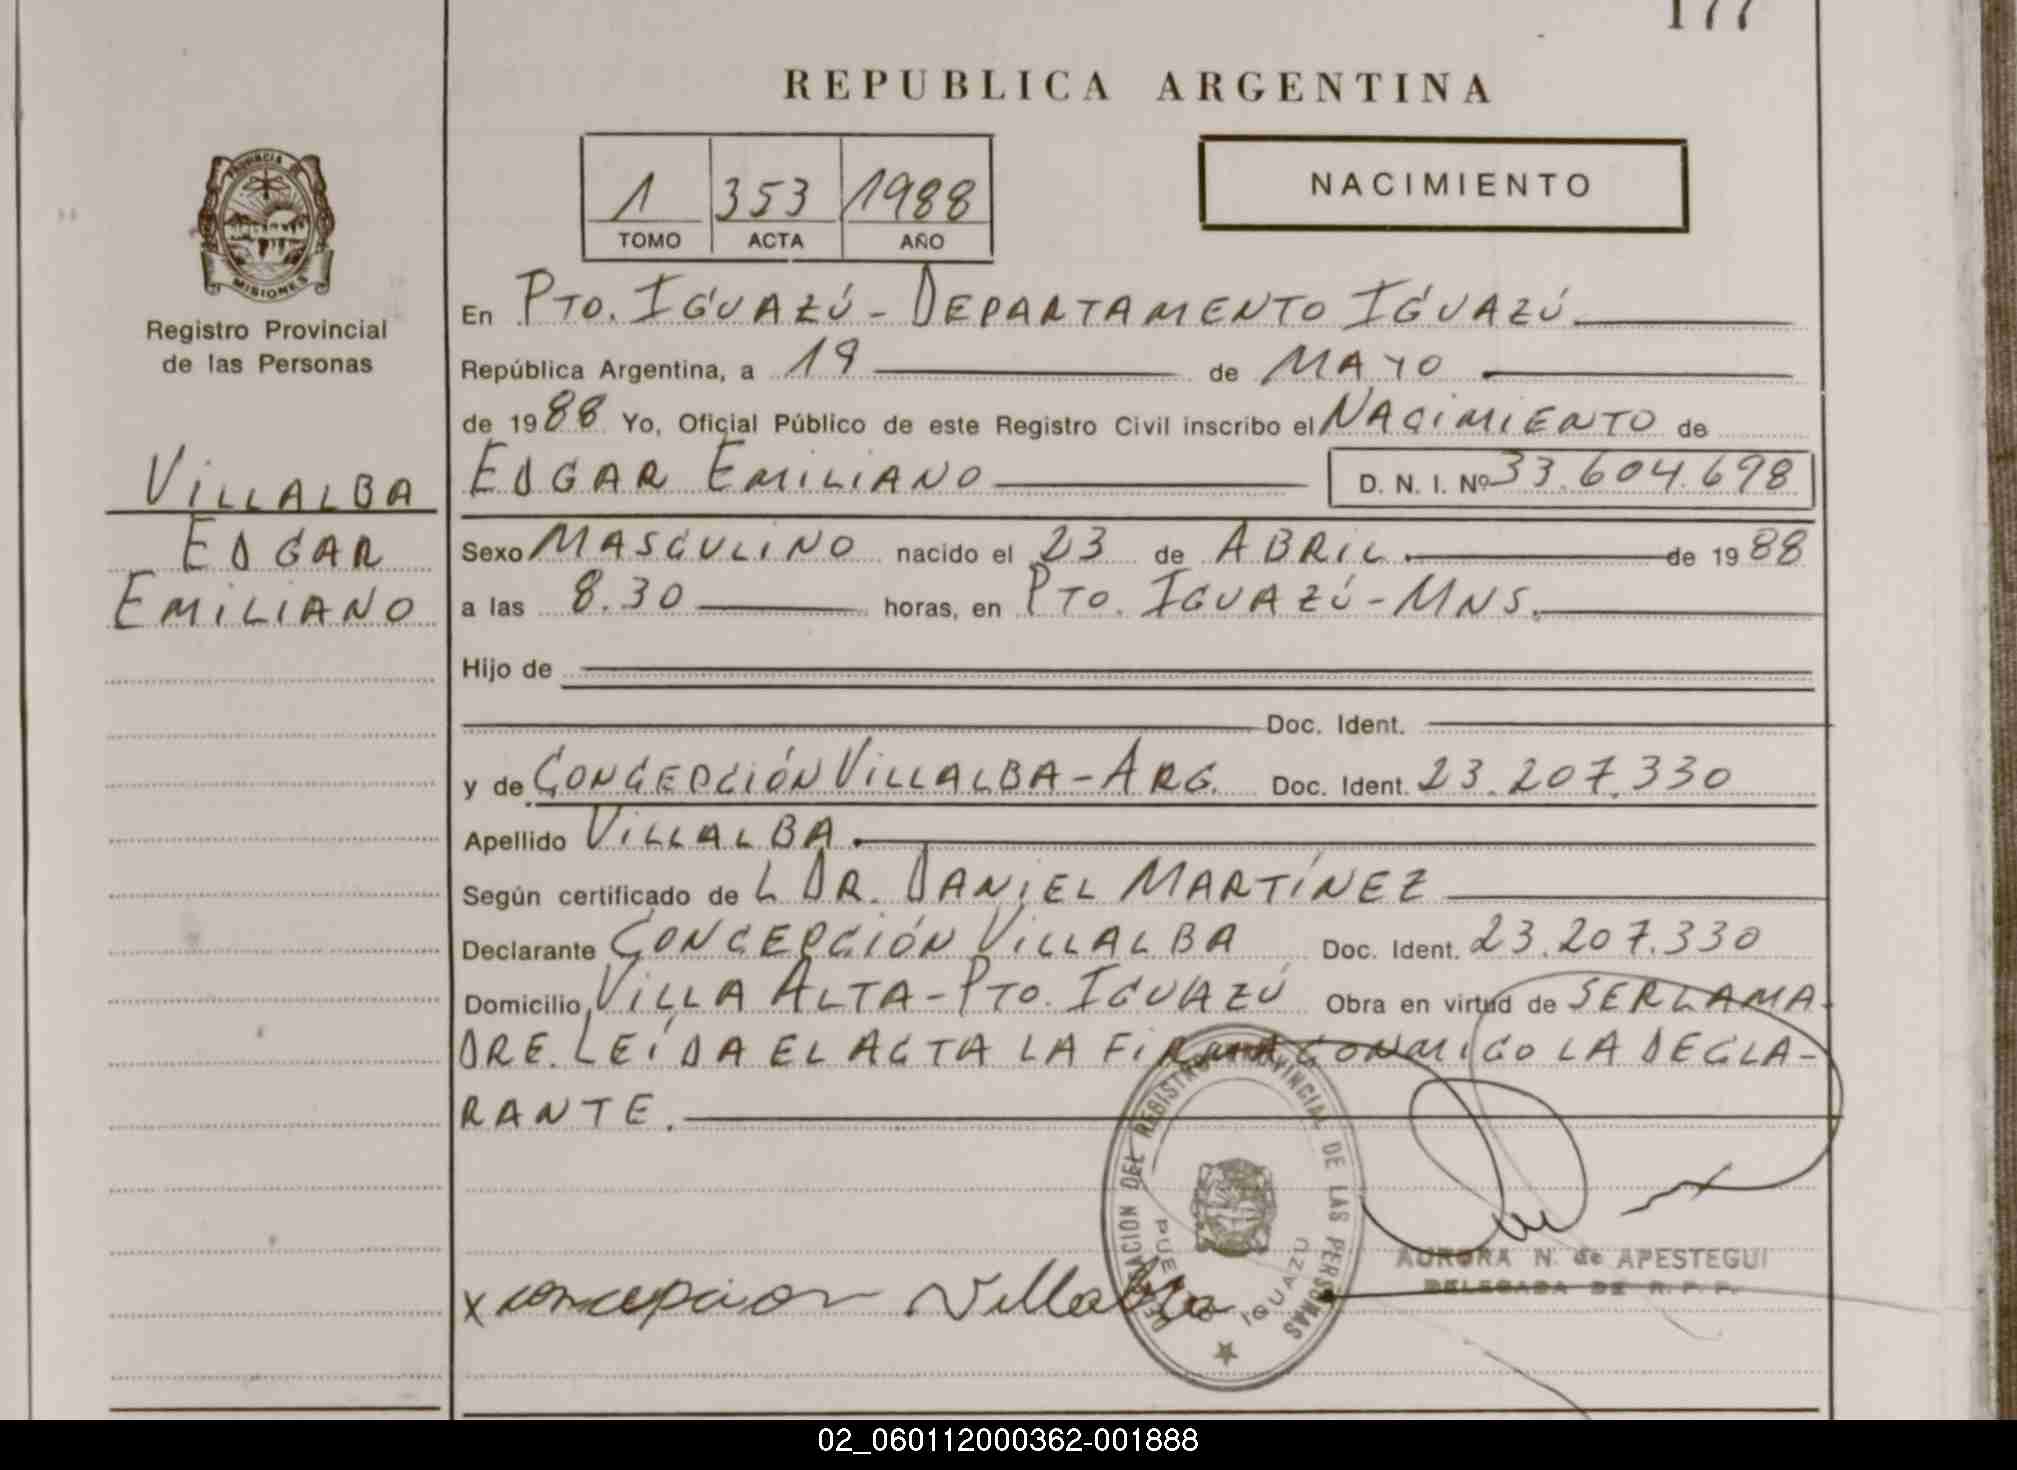 177
REPUBLICA ARGENTINA
PROVINCIA
MISIONES
Registro Provincial
de las Personas
1 353 1988
TOMO ACTA AÑO
NACIMIENTO
En PTO. IGUAZÚ - DEPARTAMENTO IGUAZÚ
República Argentina, a 19 de MAYO
de 1988 Yo, Oficial Público de este Registro Civil inscribo el NACIMIENTO de
VILLALBA
EDGAR
EMILIANO
EDGAR EMILIANO D. N. I. Nº 33.604.698
Sexo MASCULINO nacido el 23 de ABRIL. de 1988
a las 8.30 horas, en PTO. IGUAZÚ - MNS.
Hijo de
Doc. Ident.
y de CONCEPCIÓN VILLALBA - ARG. Doc. Ident. 23.207.330
Apellido VILLALBA.
Según certificado de L DR. DANIEL MARTÍNEZ
Declarante CONCEPCIÓN VILLALBA Doc. Ident. 23.207.330
Domicilio VILLA ALTA - PTO. IGUAZÚ Obra en virtud de SER LA MA-
DRE. LEÍDA EL ACTA LA FIRMA CONMIGO LA DECLA-
RANTE.
DELEGACION DEL REGISTRO PROVINCIAL DE LAS PERSONAS
PUERTO IGUAZU
AURORA N. de APESTEGUI
DELEGADA DE R. P. P.
x concepcion Villalba
02_060112000362-001888